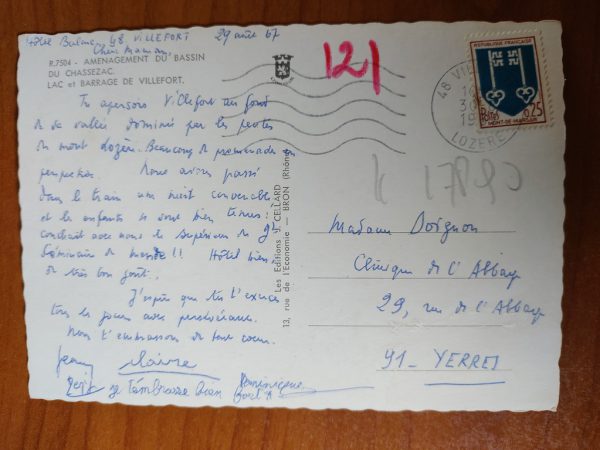 Hôtel 48 VILLEFORT 29 août 67
Chère Maman,
R.7504 - AMENAGEMENT DU BASSIN
DU CHASSEZAC.
LAC et BARRAGE DE VILLEFORT.
Tu aperçois Villefort au fond
de sa vallée dominée par les pentes
du mont Lozère. Beaucoup de promenades en
perspective. Nous avons passé
dans le train une nuit convenable
et les enfants se sont bien tenus:
avec nous le supérieur du gd
Séminaire de !! Hôtel bien,
de très bon goût.
J'espère que tu t'exerces
tous les jours avec persévérance.
Nous t'embrassons de tout coeur.
Claire
je t'embrasse bien Dominique
Les Editions J. CELLARD
13, rue de l'Economie — BRON (Rhône)
121
REPUBLIQUE FRANÇAISE
0,25
POSTES
MONT-DE-MARSAN
48 VIL
LOZERE
17890
Madame Doignon
Clinique de l'Abbaye
29, rue de l'Abbaye
91 - YERRES